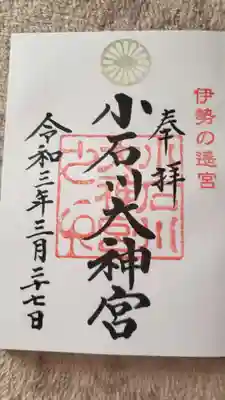 伊勢の遥宮
奉拝
小石川大神宮
令和三年三月二十七日